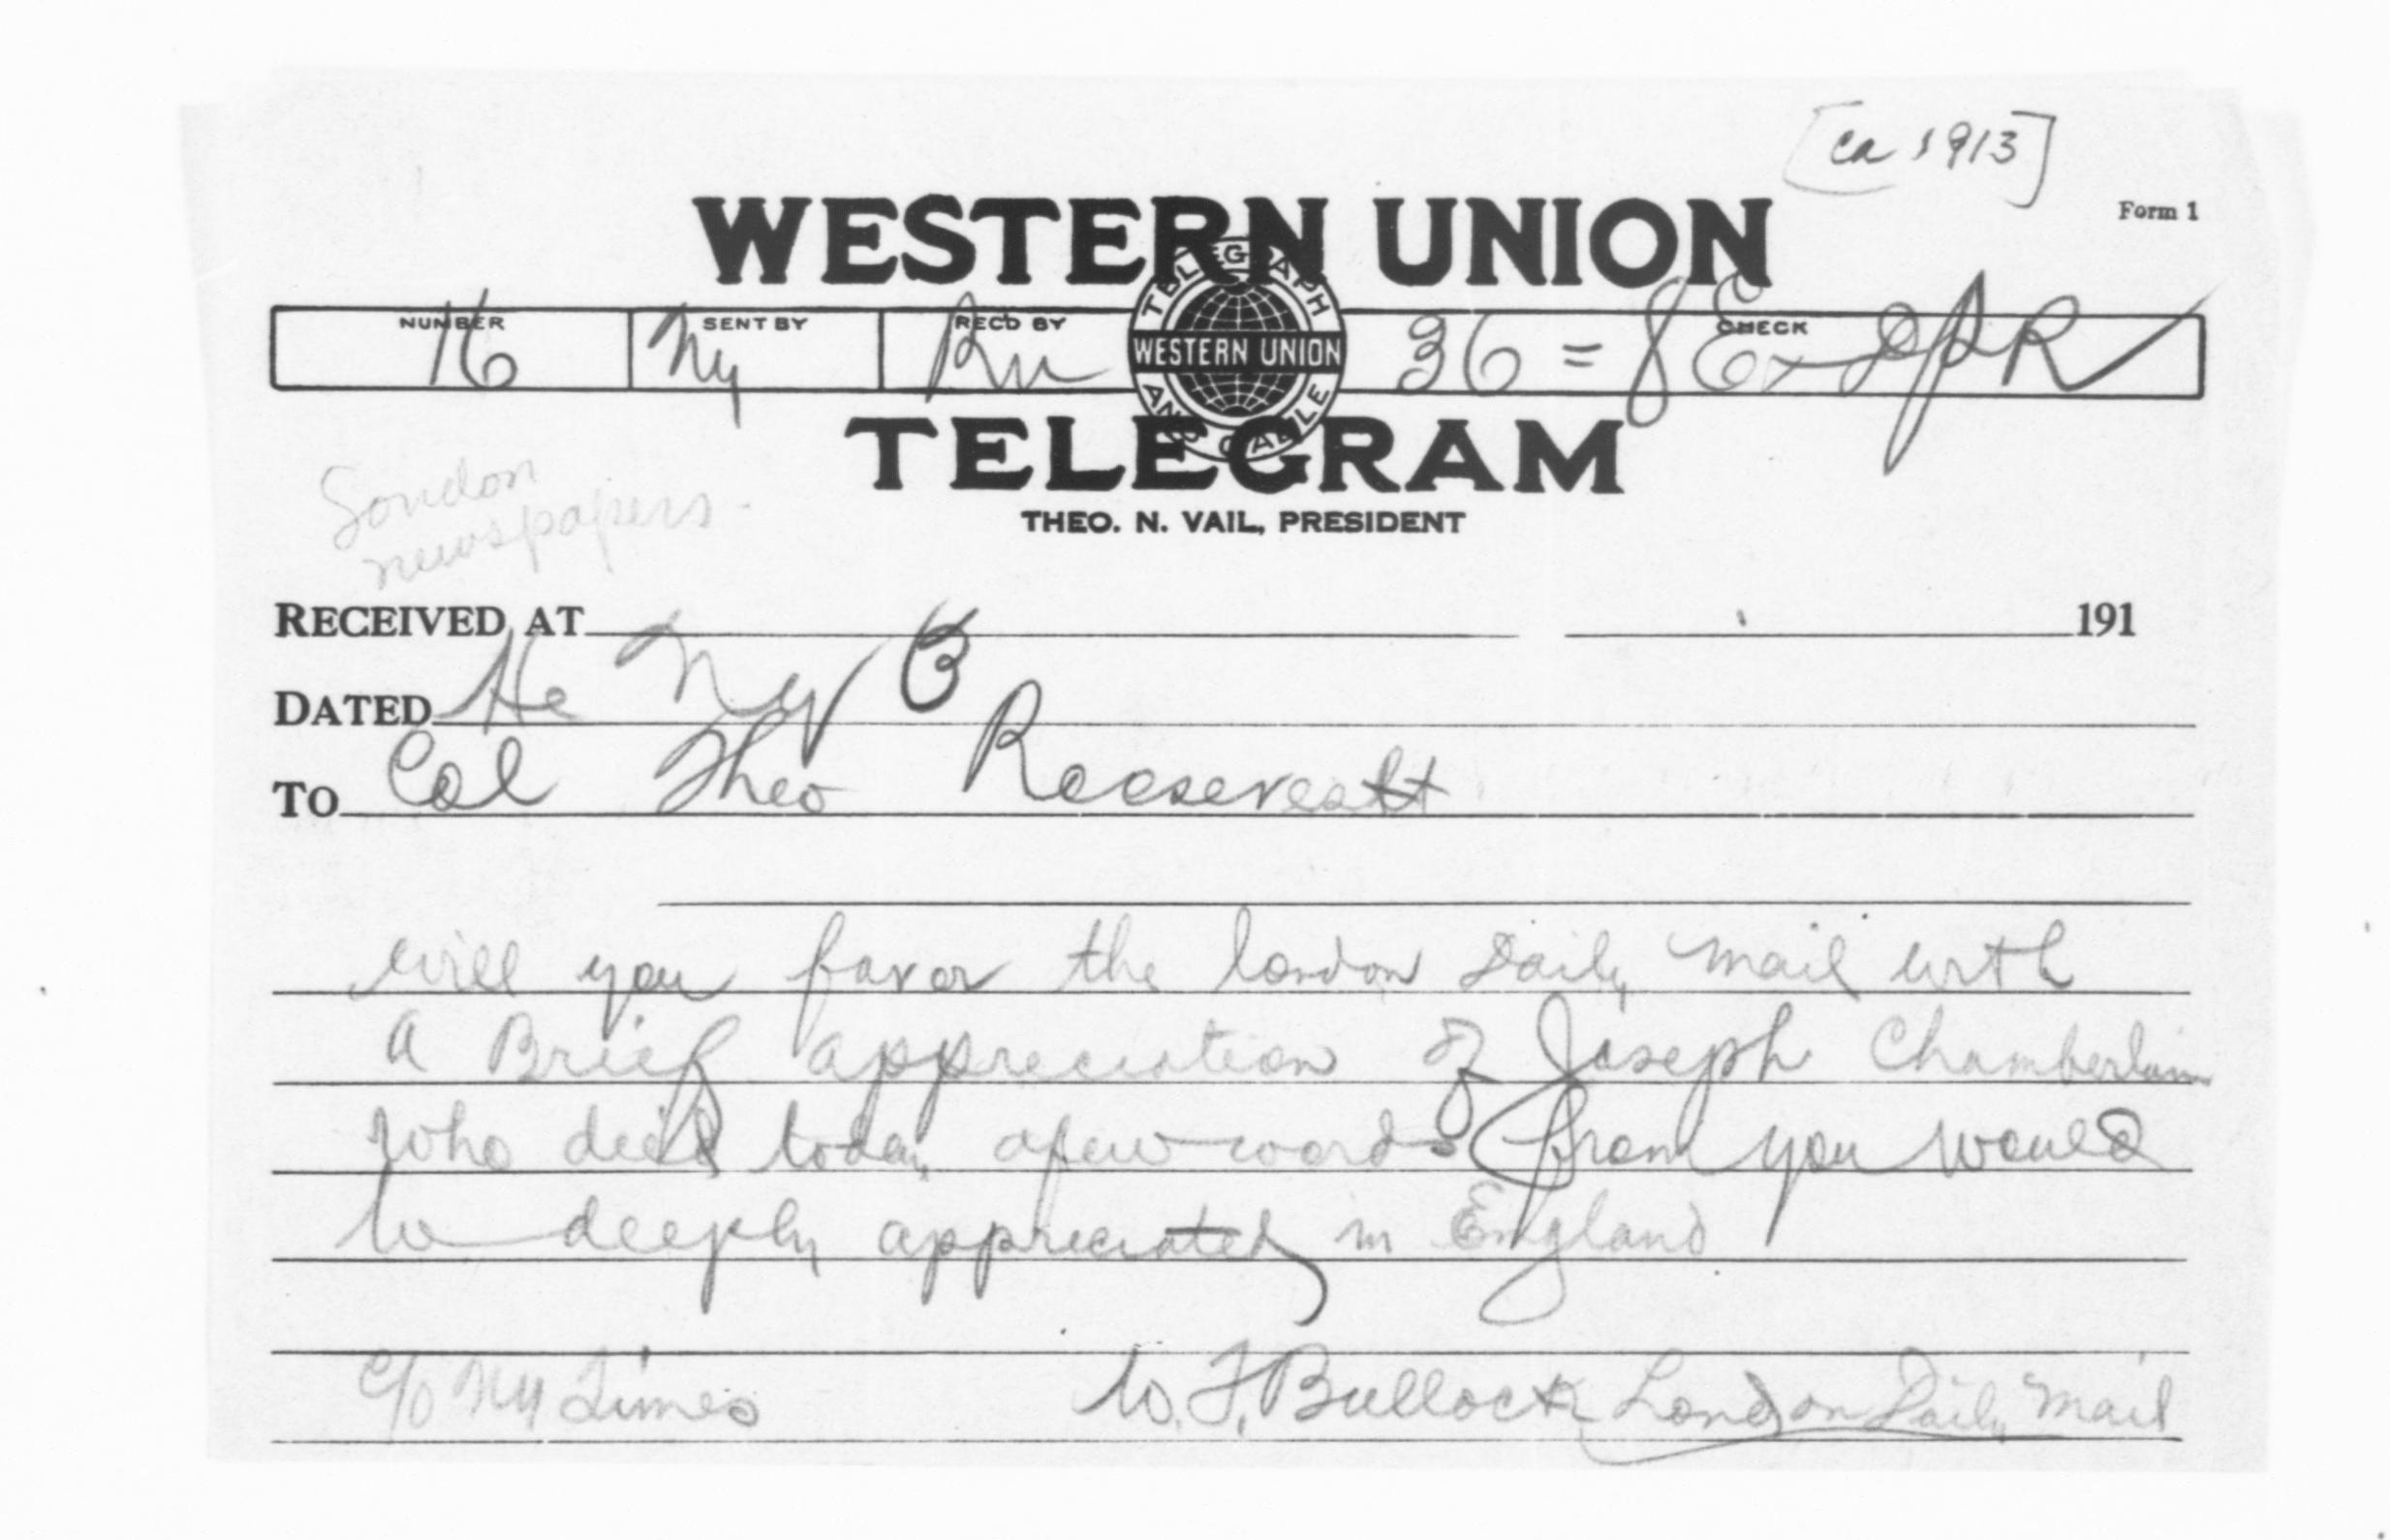 [ca 1913]
Form 1
WESTERN UNION
NUMBER SENT BY REC'D BY CHECK
16 Ny Rn 36 = 8 Ex DPR
TELEGRAPH AND CABLE
WESTERN UNION
TELEGRAM
THEO. N. VAIL, PRESIDENT
London
newspapers-
RECEIVED AT 191
DATED Ny
TO Col Theo Roosevelt
will you favor the london Daily mail with
a Brief appreciation of Joseph Chamberlain
who died today a few words from you would
be deeply appreciated in England
c/o NY Times W. F. Bullock London Daily Mail